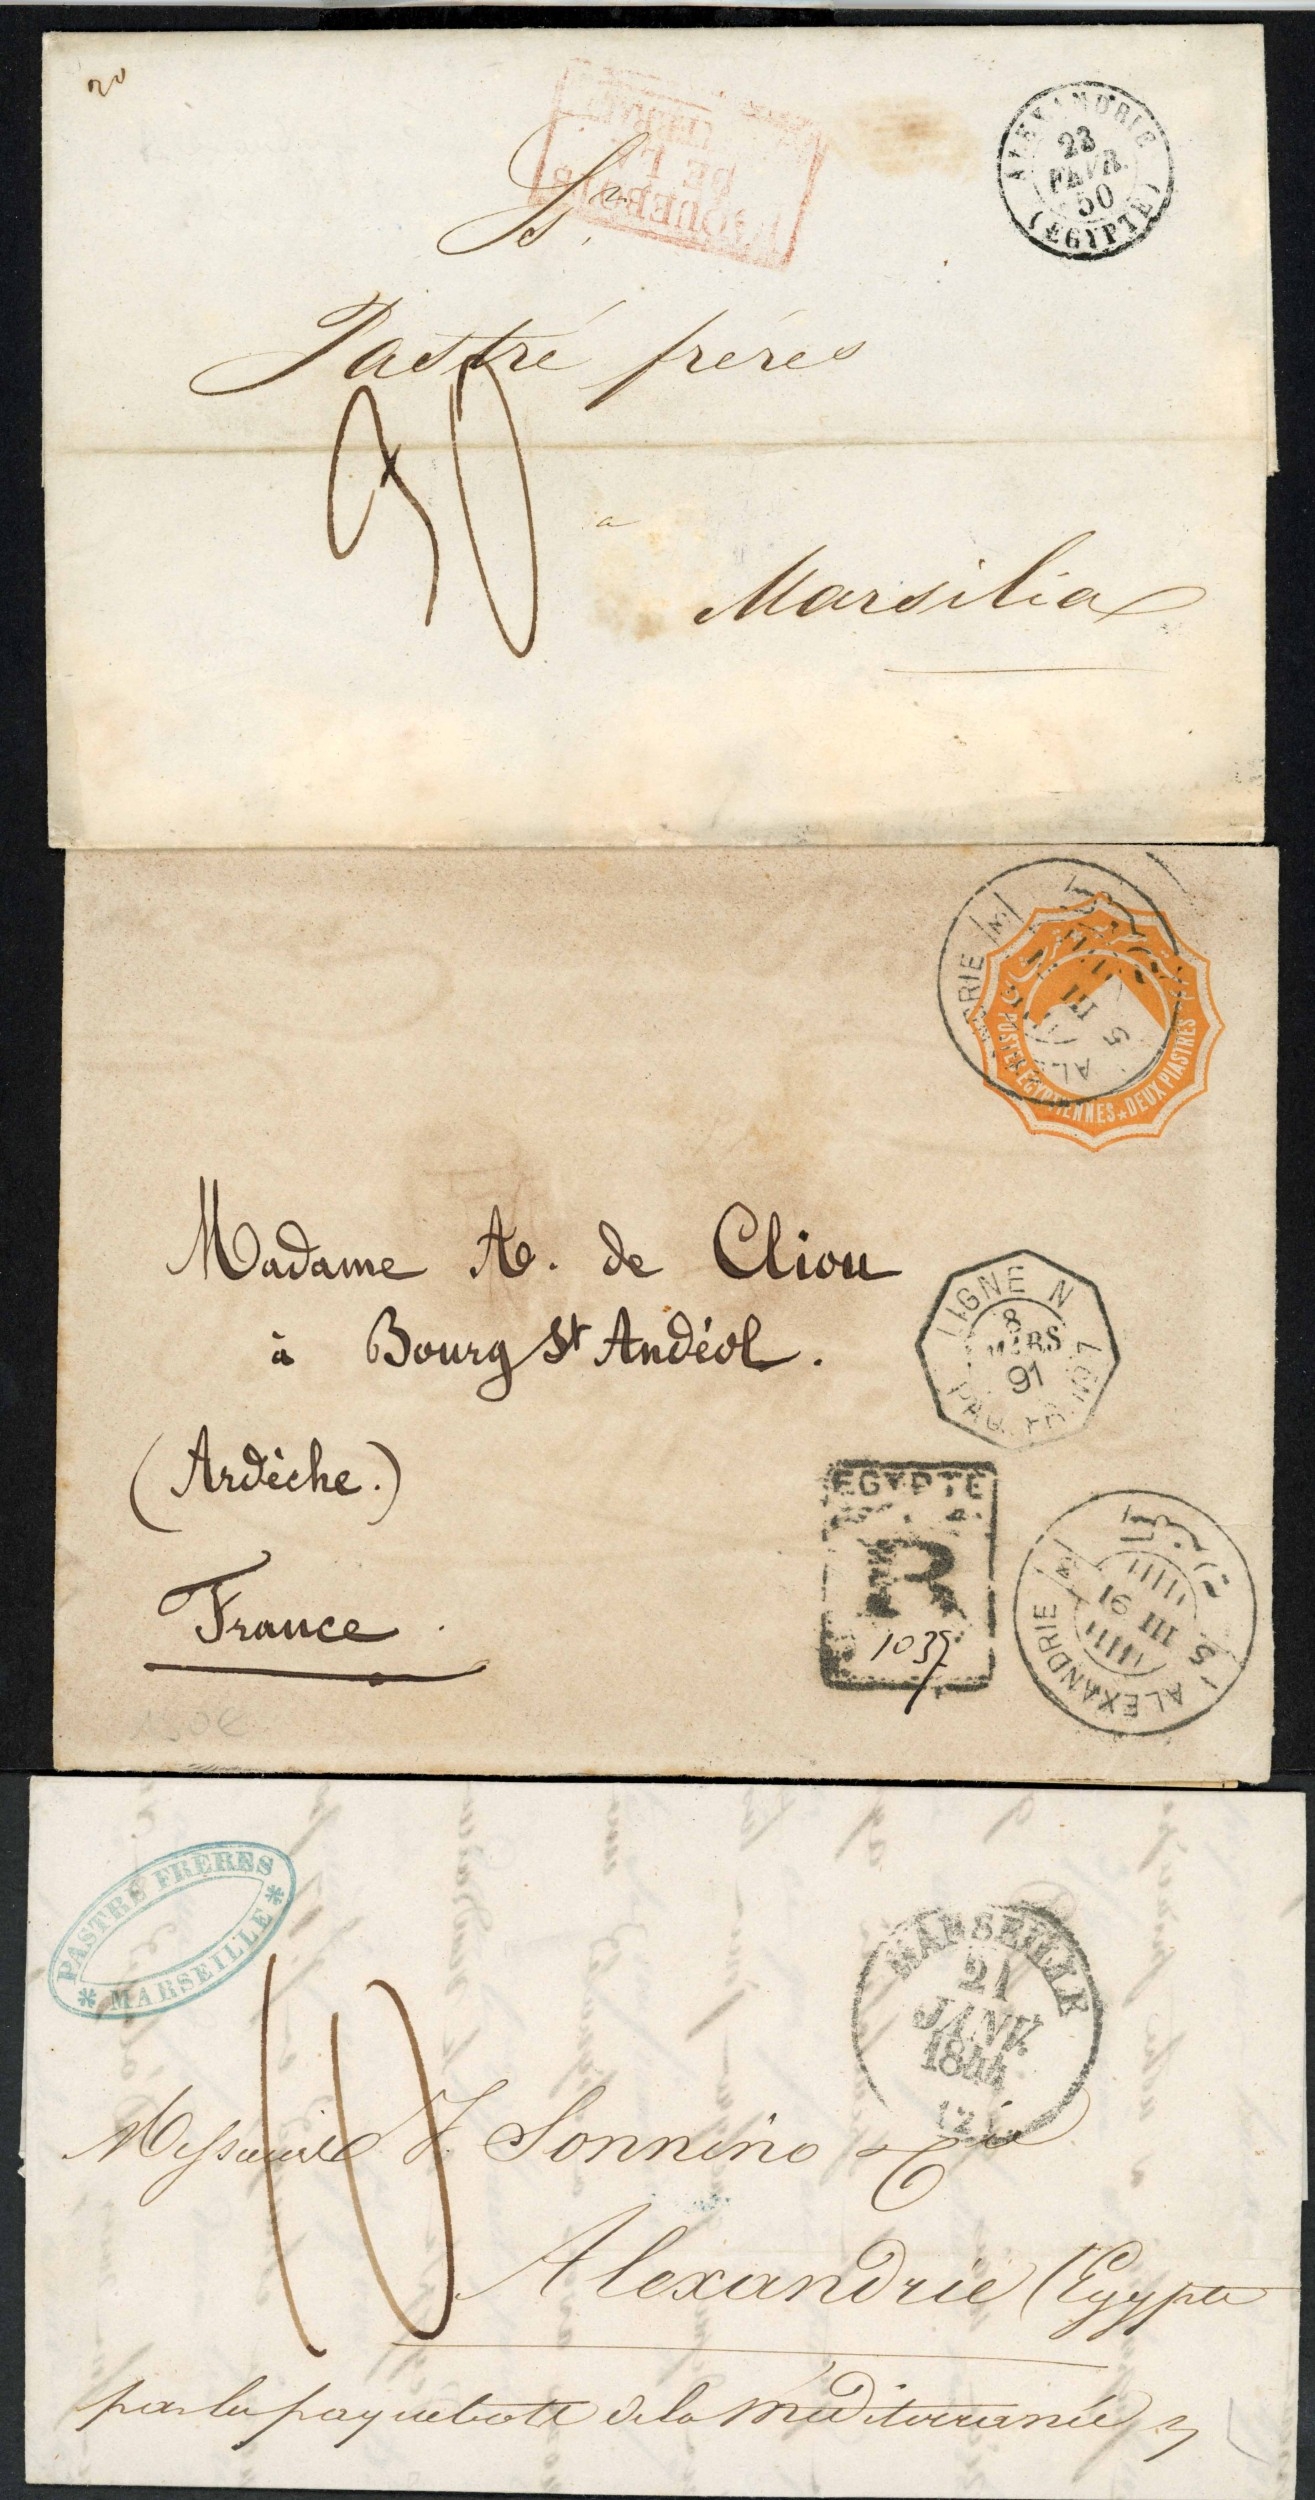 20
PAQUEBOTS
DE LA
ALEXANDRIE
23
FEVR.
50
(EGYPTE)
Sri
Pastré frères
a
Marsilia
ALEXANDRIE
5 III
POSTES EGYPTIENNES * DEUX PIASTRES
Madame A. de Cliou
à Bourg St Andéol.
(Ardèche.)
France
LIGNE N
8
MARS
91
PAQ. FR. No 7
EGYPTE
R
1039
ALEXANDRIE
5 III 91
150€
PASTRE FRERES
* MARSEILLE *
MARSEILLE
21
JANV.
1844
(12)
10
Messieurs J. Sonnino & Cie
Alexandrie (Egypte
par le paquebote de la méditerranée